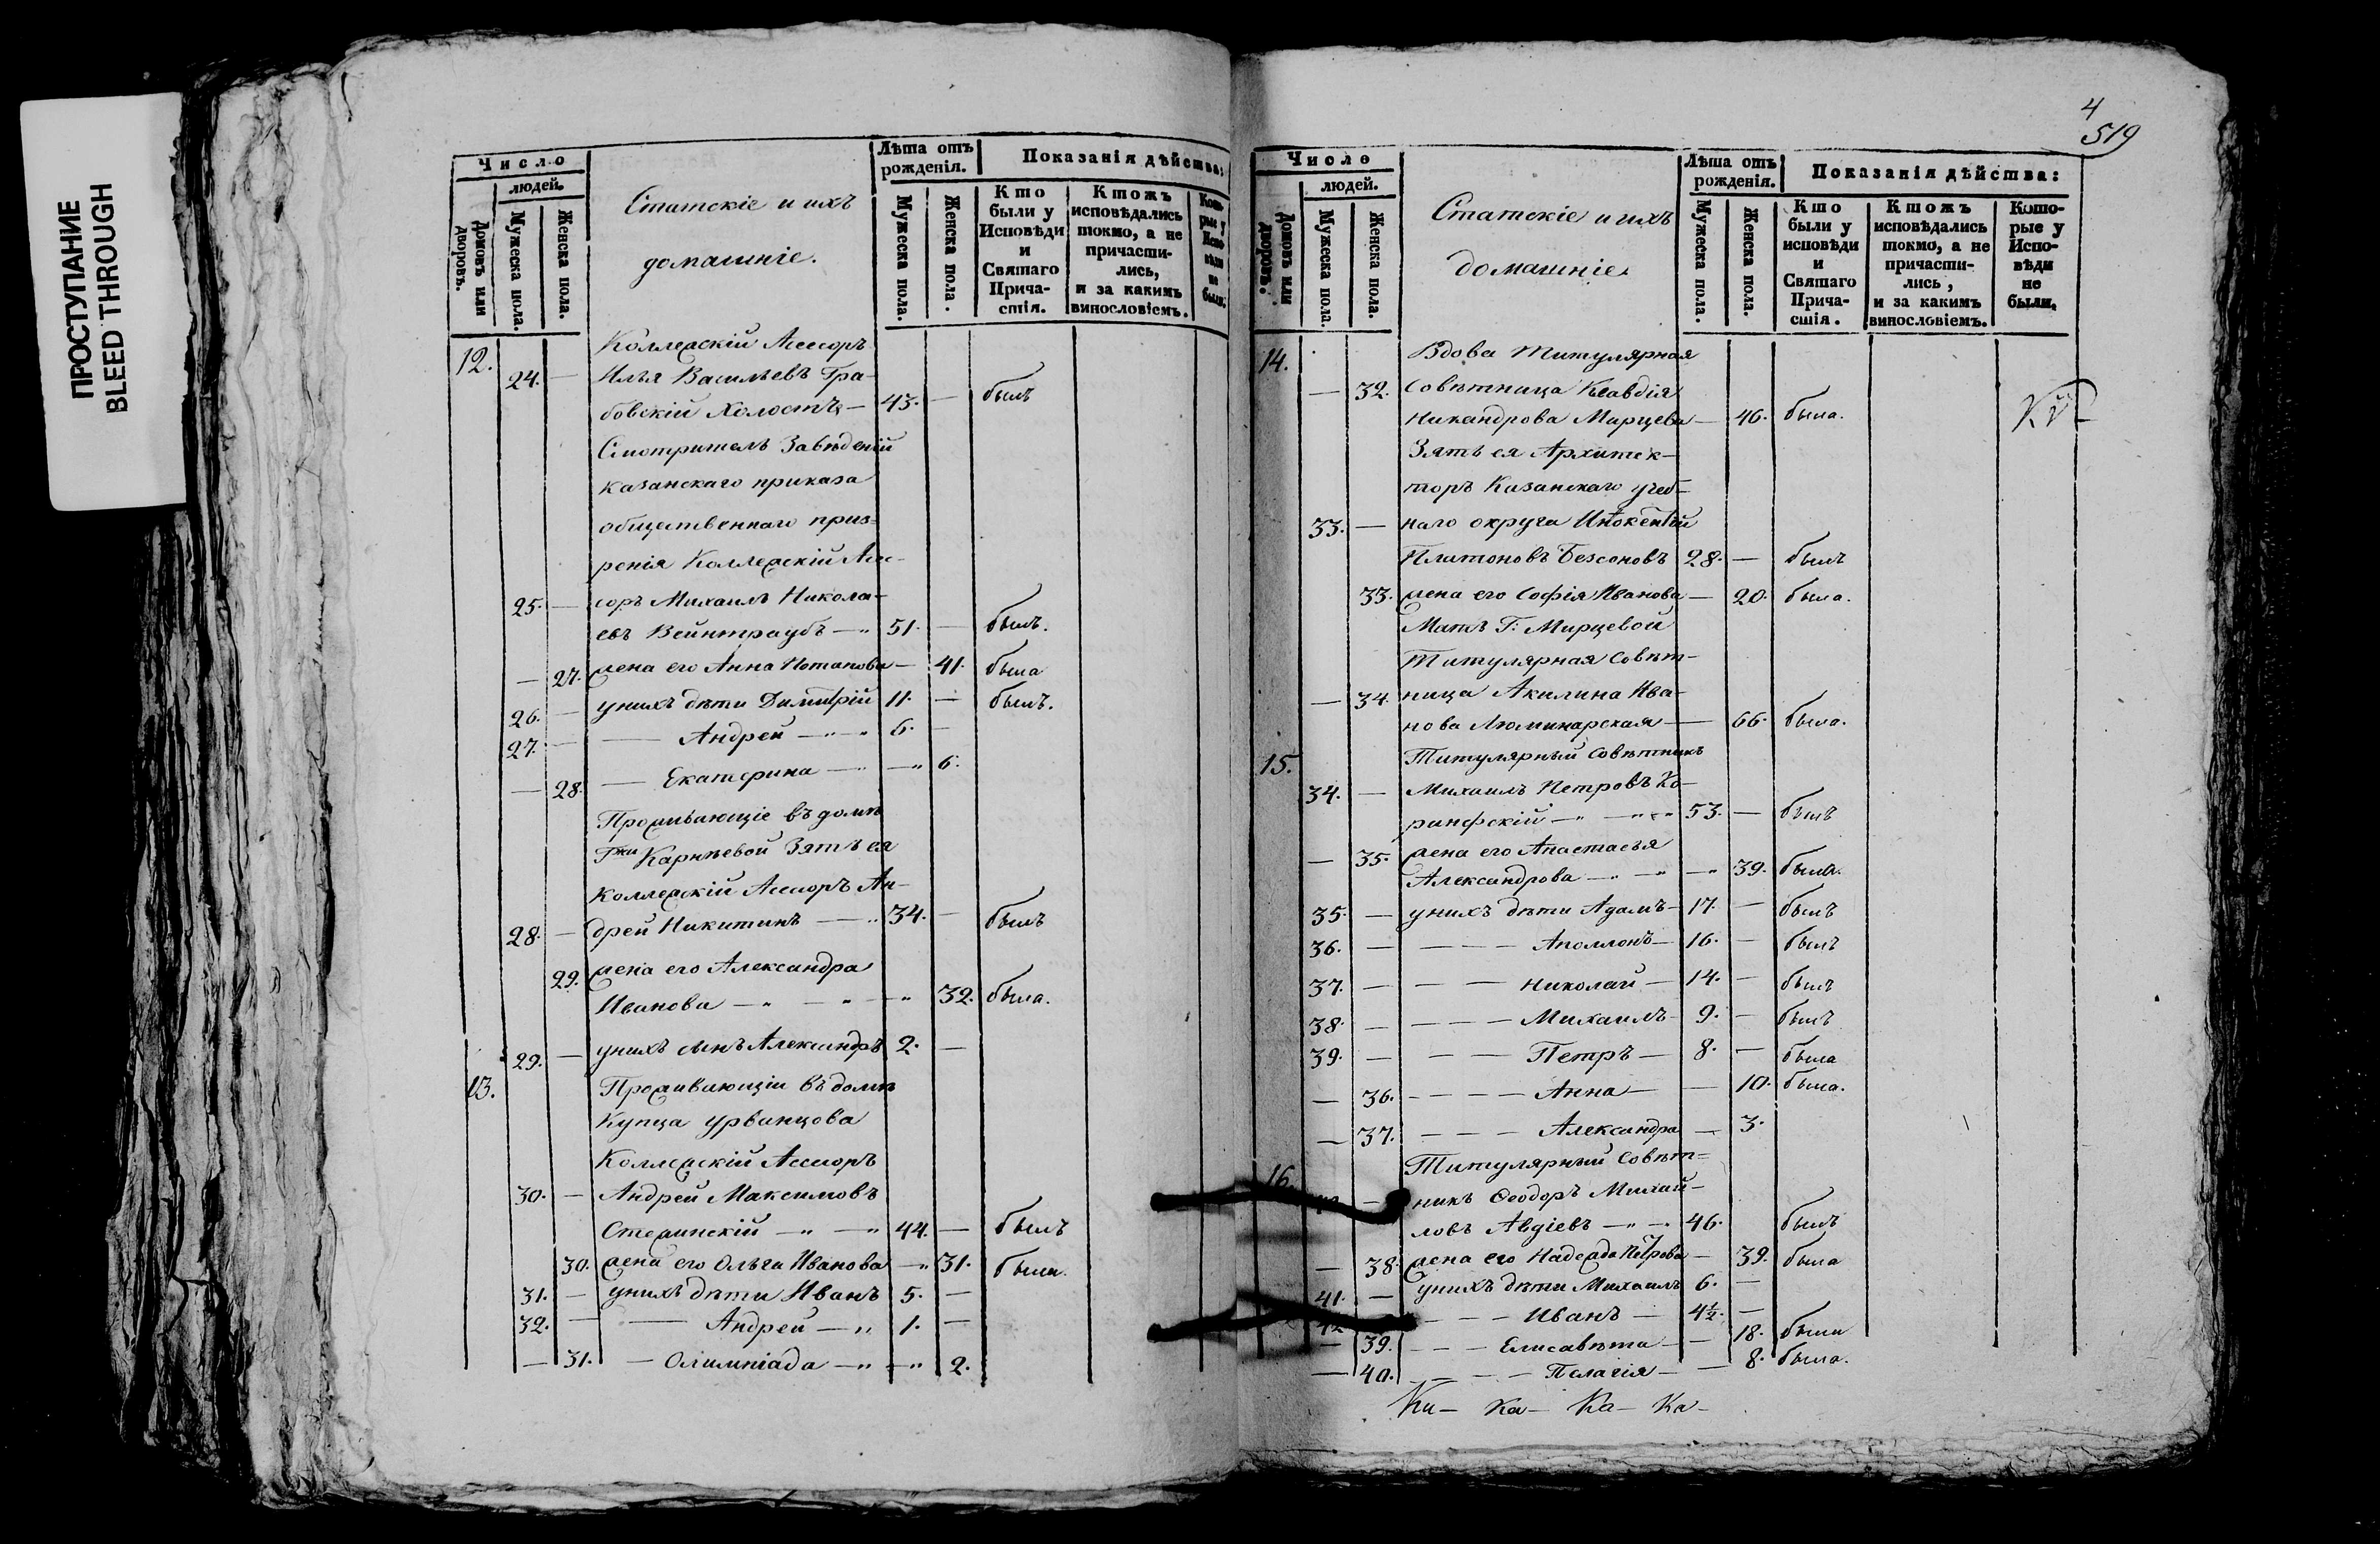 ПРОСТУПАНИЕ
BLEED THROUGH
Число
людей.
Домовъ или дворовъ.
Мужеска пола.
Женска пола.
Статскіе и ихъ
домашніе.
Лѣта отъ рожденія.
Мужеска пола.
Женска пола.
Показанія дѣйства:
Кто были у Исповѣди и Святаго Причастія.
Ктожъ исповѣдались токмо, а не причастились, и за какимъ винословіемъ.
Которые у Исповѣди не были.
12. Коллежскій Ассесоръ
24. — Илья Васильевъ Гра-
бовскій холостъ — 43. — былъ
Смотритель Заведеній
казанскаго приказа
общественнаго приз-
ренія Коллежскій Асес-
25. — соръ Михаилъ Никола-
евъ Вейнтраубъ — 51. — былъ.
— 27. жена его Анна Потапова — 41. была
26. — у нихъ дѣти Димитрій 11. — былъ.
27. — — Андрей — 6. —
— 28. — Екатерина — 6.
Проживающіе въ домѣ
Гжи Карнѣевой Зять ея
Коллежскій Ассесоръ Ан-
28. — дрей Никитинъ — 34. — былъ
29. жена его Александра
Иванова — 32. была.
29. — у нихъ сынъ Александръ 2. —
13. Проживающіи въ домѣ
Купца Урванцова
Коллежскій Ассесоръ
30. — Андрей Максимовъ
44. — былъ
30. жена его Ольга Иванова — 31. была.
31. — у нихъ дѣти Иванъ 5. —
32. — — Андрей — 1. —
— 31. — Олимпіада — 2.
4
519
Число
людей.
Домовъ или дворовъ.
Мужеска пола.
Женска пола.
Статскіе и ихъ
домашніе
Лѣта отъ рожденія.
Мужеска пола.
Женска пола.
Показанія дѣйства:
Кто были у исповѣди и Святаго Причастія.
Ктожъ исповѣдались токмо, а не причастились, и за какимъ винословіемъ.
Которые у Исповѣди не были.
14. Вдова Титулярная
— 32. Совѣтница Клавдія
Никандрова Мирцева — 46. была.
Зять ея Архитек-
торъ Казанскаго учеб-
33. — наго округа Инокентій
Платоновъ Безсоновъ 28. — былъ
33. жена его Софія Иванова — 20. была.
Мать Г: Мирцевой
Титулярная Совѣт-
— 34. ница Акилина Ива-
нова Люминарская — 66. была.
15. Титулярный Совѣтникъ
34. — Михаилъ Петровъ Ко-
ринфскій — 53. — былъ
— 35. жена его Анастасья
Александрова — 39. была.
35. — у нихъ дѣти Адамъ — 17. — былъ
36. — — — — Аполлонъ — 16. — былъ
37. — — — Николай — 14. — былъ
38. — — — — Михаилъ — 9. — былъ
39. — — — Петръ — 8. — была
— 36. — — — — Анна — — 10. была.
— 37. — — — Александра — 3.
16. Титулярный Совѣт-
— никъ Ѳеодоръ Михай-
ловъ Авдіевъ — 46. былъ
— 38. жена его Надежда Петрова — 39. была
41. — у нихъ дѣти Михаилъ 6. —
42 — — — Иванъ — 4½. —
— 39. — — — Елисавѣта — — 18. была
— 40. — — — — Пелагія — — 8. была.
Ка — Ка — Ка — Ка —